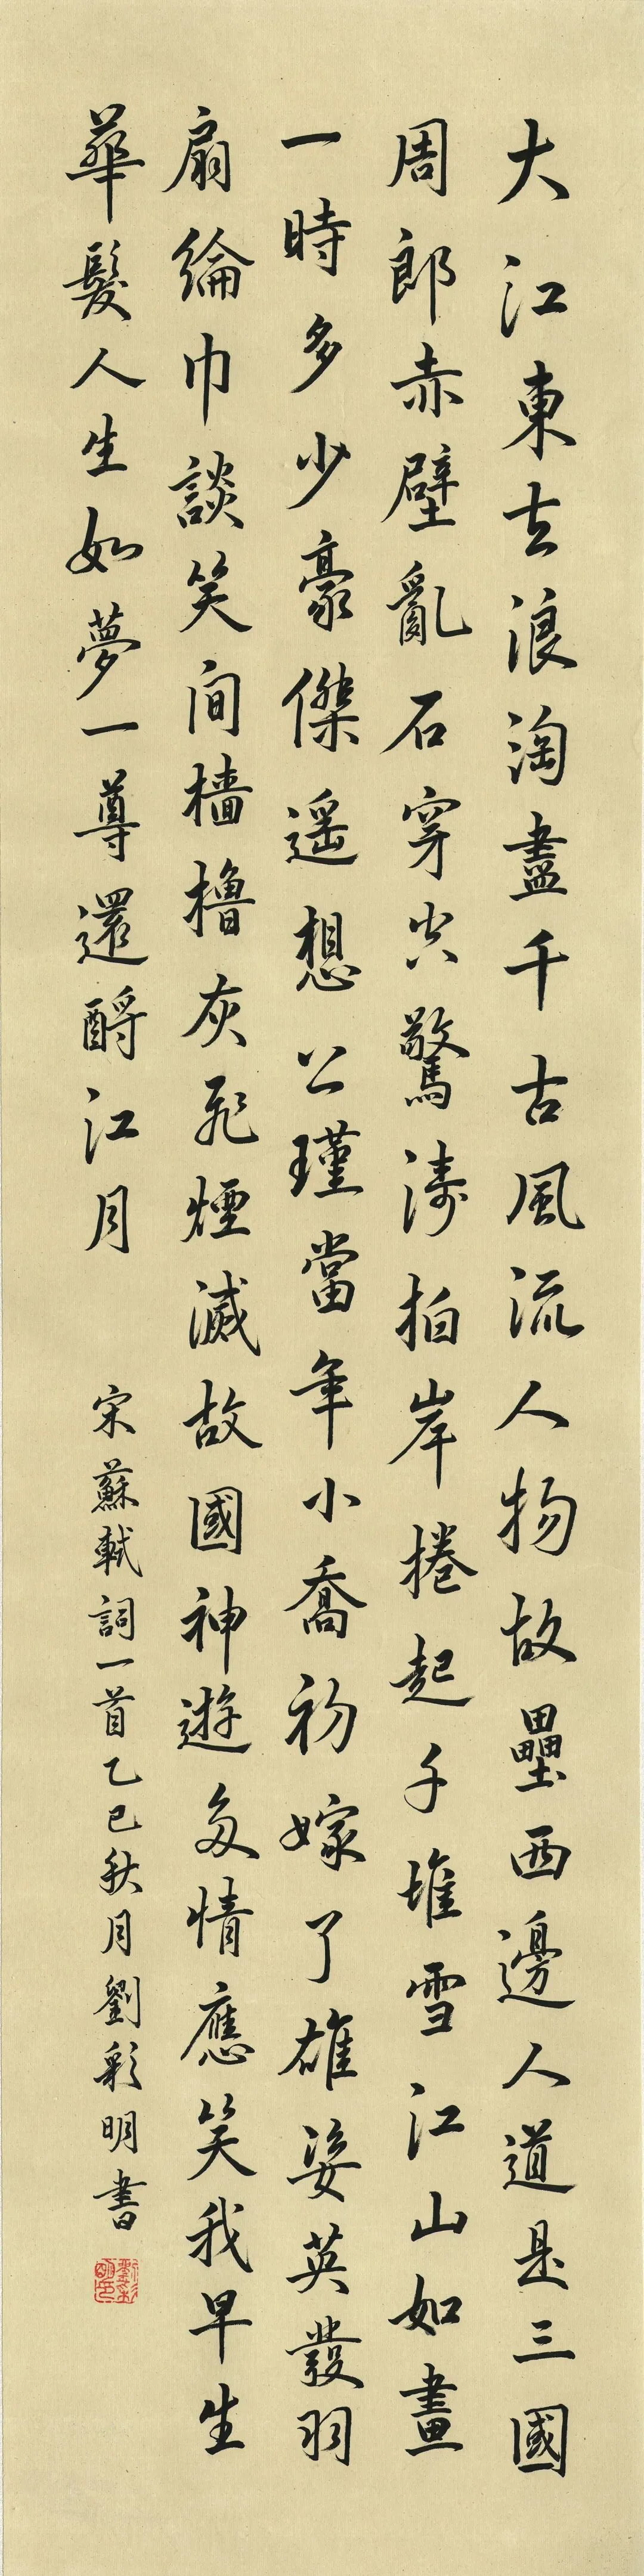 大江東去浪淘盡千古風流人物故壘西邊人道是三國
周郎赤壁亂石穿空驚濤拍岸捲起千堆雪江山如畫
一時多少豪傑遥想公瑾當年小喬初嫁了雄姿英發羽
扇綸巾談笑間檣櫓灰飛煙滅故國神遊多情應笑我早生
華髮人生如夢一尊還酹江月
宋蘇軾詞一首乙巳秋月劉彩明書
劉彩明印